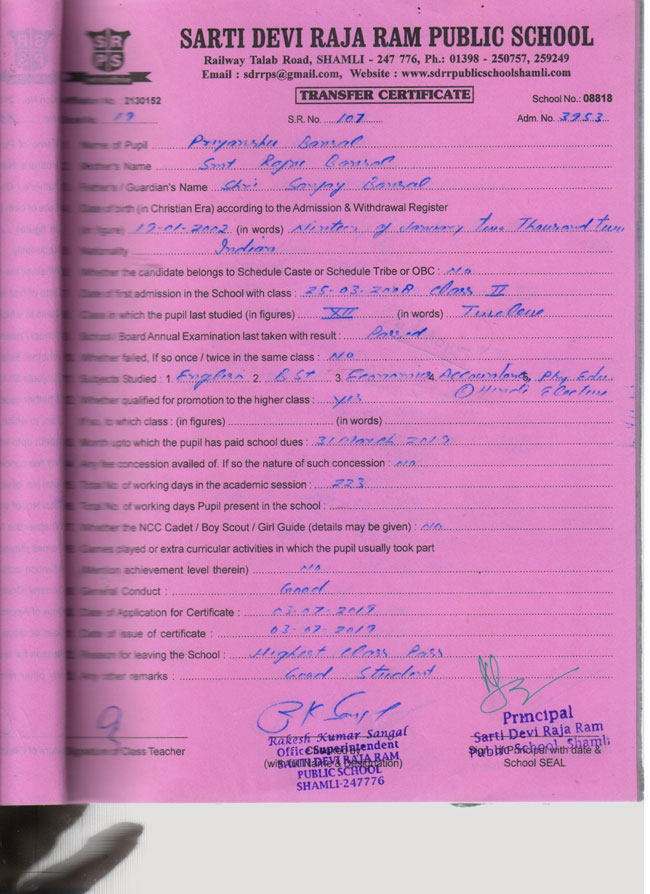 SRPS
SARTI DEVI RAJA RAM PUBLIC SCHOOL
Railway Talab Road, SHAMLI - 247 776, Ph.: 01398 - 250757, 259249
Email : sdrrps@gmail.com, Website : www.sdrrpublicschoolshamli.com
TRANSFER CERTIFICATE
No.: 2130152 School No.: 08818
19 S.R. No. 107 Adm. No. 3953
Name of Pupil Priyanshu Bansal
Mother's Name Smt Rajni Bansal
Father's / Guardian's Name Shri Sanjay Bansal
Date of birth (in Christian Era) according to the Admission & Withdrawal Register
(in figure) 19-01-2002 (in words) of January Two Thousand two
Nationality Indian
Whether the candidate belongs to Schedule Caste or Schedule Tribe or OBC : No
Date of first admission in the School with class : 25-03-2008 Class II
Class in which the pupil last studied (in figures) XII (in words) Twelve
School / Board Annual Examination last taken with result : Passed
Whether failed, If so once / twice in the same class : No
Subjects Studied : 1. English 2. BSt 3. Economics 4. Accountancy 5. Phy. Edu.
Hindi Elective
Whether qualified for promotion to the higher class : yes
If so, to which class : (in figures) (in words)
Month upto which the pupil has paid school dues : 31 March 2019
Any fee concession availed of. If so the nature of such concession : No
Total No. of working days in the academic session : 223
Total No. of working days Pupil present in the school :
Whether the NCC Cadet / Boy Scout / Girl Guide (details may be given) : No
Games played or extra curricular activities in which the pupil usually took part
(Mention achievement level therein) No
General Conduct : Good
Date of Application for Certificate : 03-07-2019
Date of issue of certificate : 03-07-2019
Reason for leaving the School : Highest Class Pass
Any other remarks : Good Student
Rakesh Kumar Sangal
Office Superintendent
SARTI DEVI RAJA RAM
PUBLIC SCHOOL
SHAMLI-247776
Principal
Sarti Devi Raja Ram
Public School, Shamli
Signature of Class Teacher
(with full Name & Designation)
Sign. of Principal with date &
School SEAL